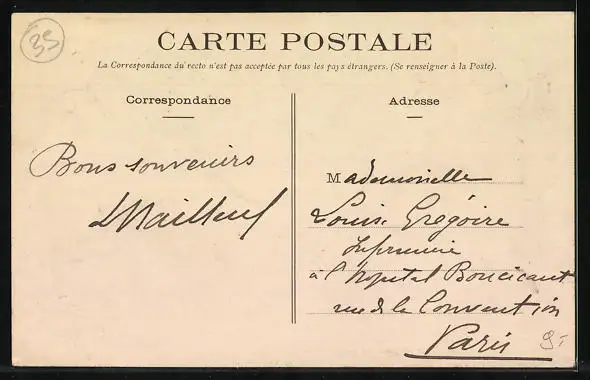 35
CARTE POSTALE
La Correspondance du recto n'est pas acceptée par tous les pays étrangers. (Se renseigner à la Poste).
Correspondance
Adresse
Bons souvenirs
Mademoiselle
Louise Grégoire
Infirmière
à l'hopital Boucicaut
rue de la Convention
Paris